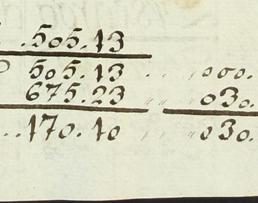 .505.13
505.13 .. 000.
675.23 030.
..170.10 030.